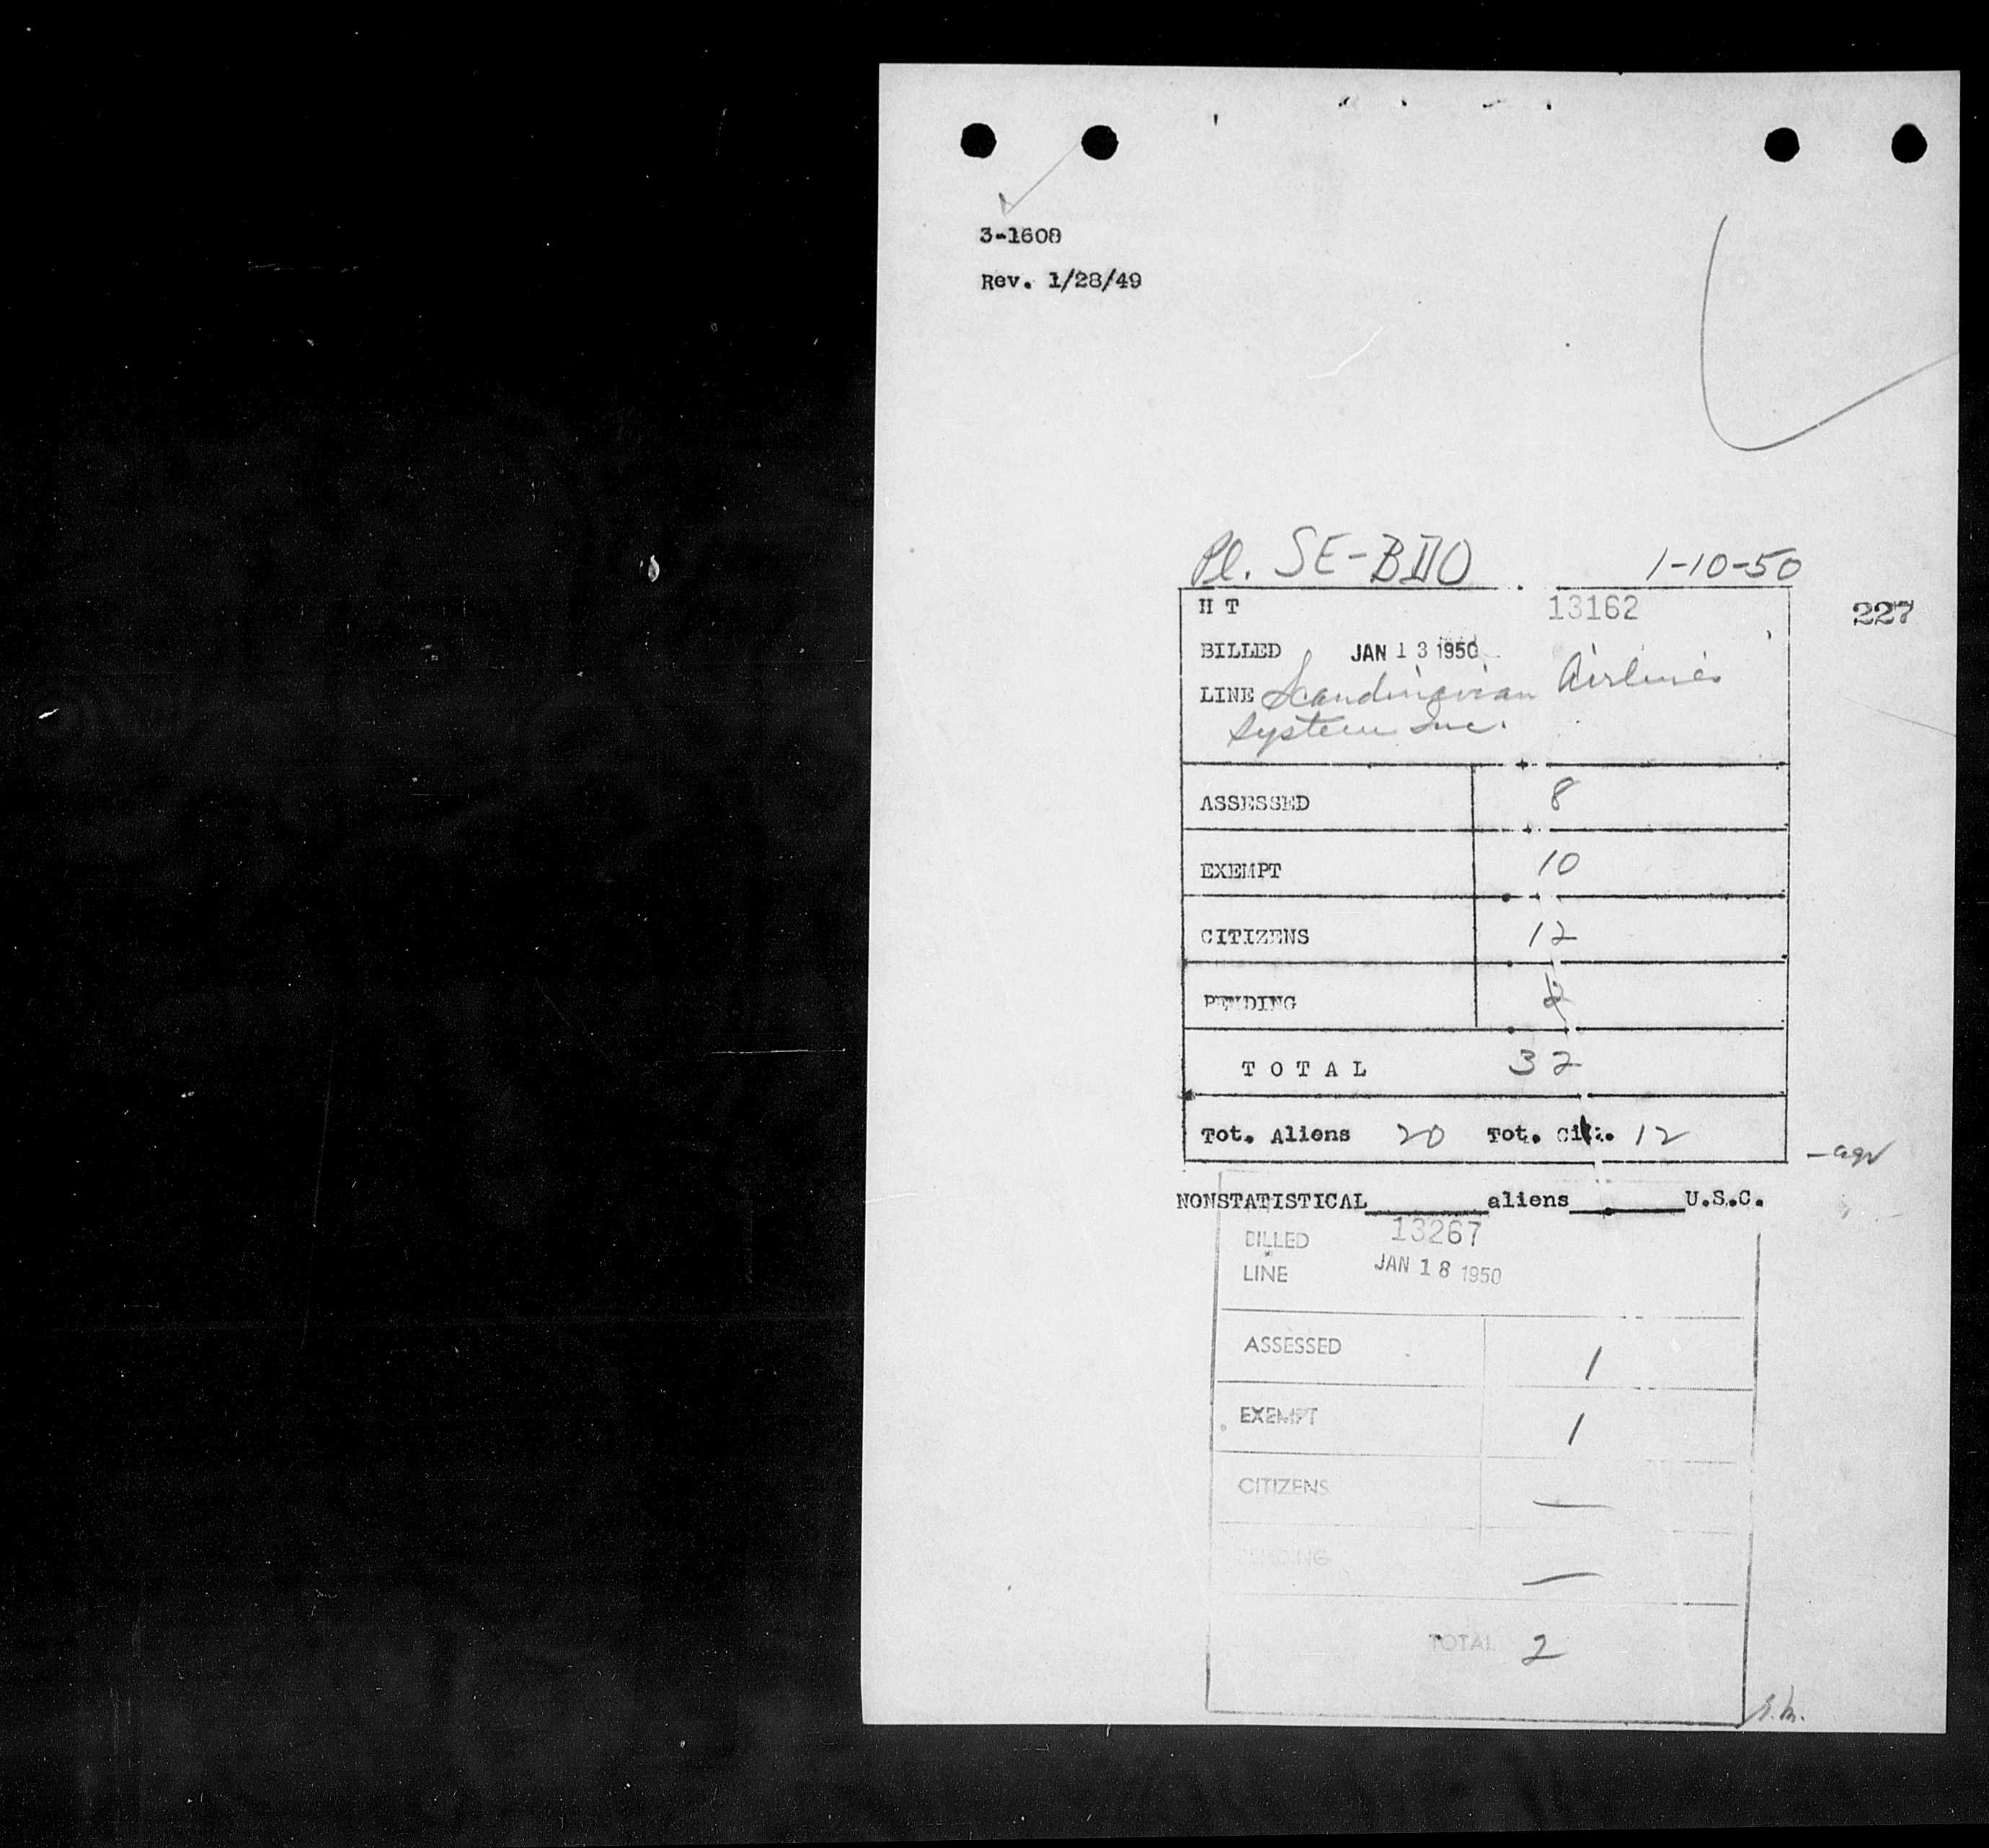 3-1608
Rev. 1/28/49
Pl. SE-BDO 1-10-50
H T 13162
227
BILLED JAN 13 1950
LINE Scandinavian Airlines
System Inc.
ASSESSED 8
EXEMPT 10
CITIZENS 12
PENDING
T O T A L 32
Tot. Aliens 20 Tot. Cit. 12
NONSTATISTICAL______aliens______U.S.C.
BILLED 13267
LINE JAN 18 1950
ASSESSED 1
EXEMPT 1
CITIZENS —
PENDING —
TOTAL 2